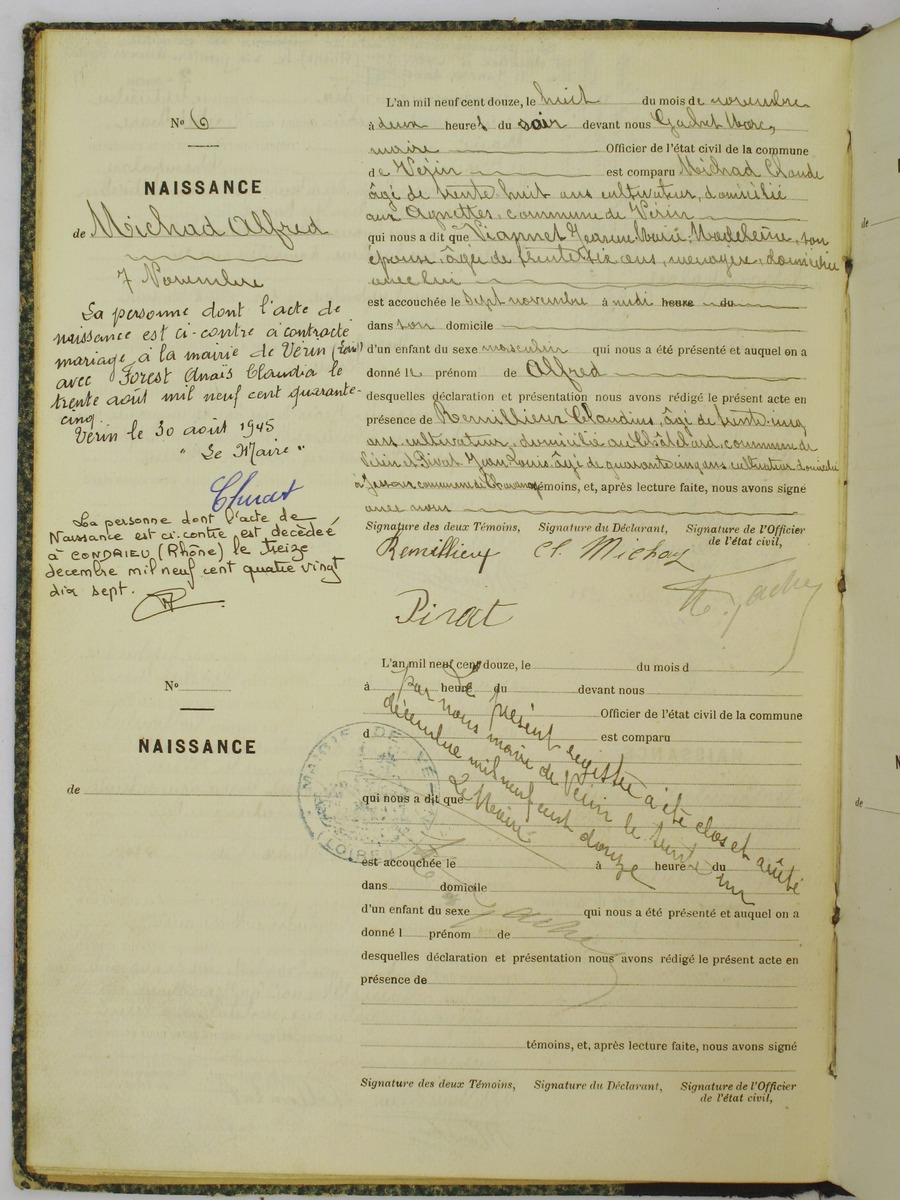 N° 6
NAISSANCE
de Michad Alfred
7 Novembre
La personne dont l'acte de
naissance est ci-contre a contracté
mariage à la mairie de Vérin (Loire)
avec Forest Anaïs Claudia le
trente août mil neuf cent quarante-
cinq.
Vérin le 30 août 1945
"Le Maire"
La personne dont l'acte de
Naissance est ci-contre est décédée
à CONDRIEU (Rhône) le treize
décembre mil neuf cent quatre vingt
dix sept.
L'an mil neuf cent douze, le huit du mois de novembre
à deux heures du soir devant nous Gachet Marc,
maire Officier de l'état civil de la commune
de Vérin est comparu Michad Claude
âgé de trente huit ans cultivateur, domicilié
aux Agnettes, commune de Vérin
qui nous a dit que Viannet Jeanne Marie Madeleine, son
épouse, âgée de trente six ans, ménagère, domiciliée
avec lui
est accouchée le sept novembre à midi heure du
dans son domicile
d'un enfant du sexe masculin qui nous a été présenté et auquel on a
donné le prénom de Alfred
desquelles déclaration et présentation nous avons rédigé le présent acte en
présence de Remillieux Claudius, âgé de trente-cinq
ans, cultivateur, domicilié au Châtelard, commune de
Vérin et Pirat Jean Louis âgé de quarante cinq ans cultivateur domicilié
à commune de témoins, et, après lecture faite, nous avons signé
avec nous
Signature des deux Témoins, Signature du Déclarant, Signature de l'Officier
de l'état civil,
Remillieux Cl. Michaz
Pirat
N°
NAISSANCE
de
L'an mil neuf cent douze, le du mois d
à heure du devant nous
Officier de l'état civil de la commune
d est comparu
qui nous a dit que
est accouchée le à heure du
dans domicile
d'un enfant du sexe qui nous a été présenté et auquel on a
donné l prénom de
desquelles déclaration et présentation nous avons rédigé le présent acte en
présence de
témoins, et, après lecture faite, nous avons signé
Signature des deux Témoins, Signature du Déclarant, Signature de l'Officier
de l'état civil,
Le présent registre a été clos et arrêté
par nous maire de Vérin le trente un
décembre mil neuf cent douze
Le Maire
MAIRIE DE VE
(LOIRE)